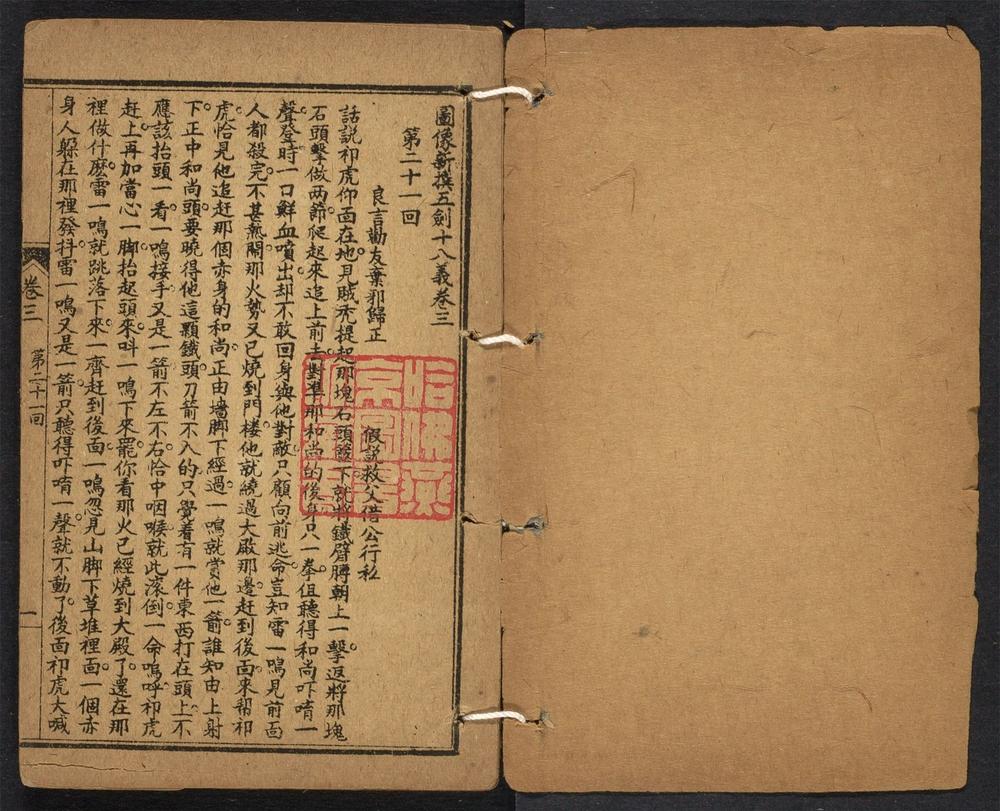 圖像新撰五劍十八義卷三
第二十一回
良言勸友棄邪歸正　假說救父借公行私
話說祁虎仰面在地見賊禿提起那塊石頭放下就將鐵臂膊朝上一擊返將那塊
石頭擊做兩節爬起來追上前去對準那和尚的後身只一拳但聽得和尚吓唷一
聲登時一口鮮血噴出却不敢回身與他對敵只顧向前逃命豈知雷一鳴見前面
人都殺完不甚熱鬧那火勢又已燒到門樓他就繞過大殿那邊赶到後面來帮祁
虎恰見他追赶那個赤身的和尚正由墻脚下經過一鳴就賞他一箭誰知由上射
下正中和尚頭要曉得他這顆鐵頭刀箭不入的只覺着有一件東西打在頭上不
應該抬頭一看一鳴接手又是一箭不左不右恰中咽喉就此滚倒一命嗚呼祁虎
赶上再加當心一脚抬起頭來呌一鳴下來罷你看那火已經燒到大殿了還在那
裡做什麽雷一鳴就跳落下來一齊赶到後面一鳴忽見山脚下草堆裡面一個赤
身人躱在那裡發抖雷一鳴又是一箭只聽得吓唷一聲就不動了後面祁虎大喊
卷三
第二十一回
一